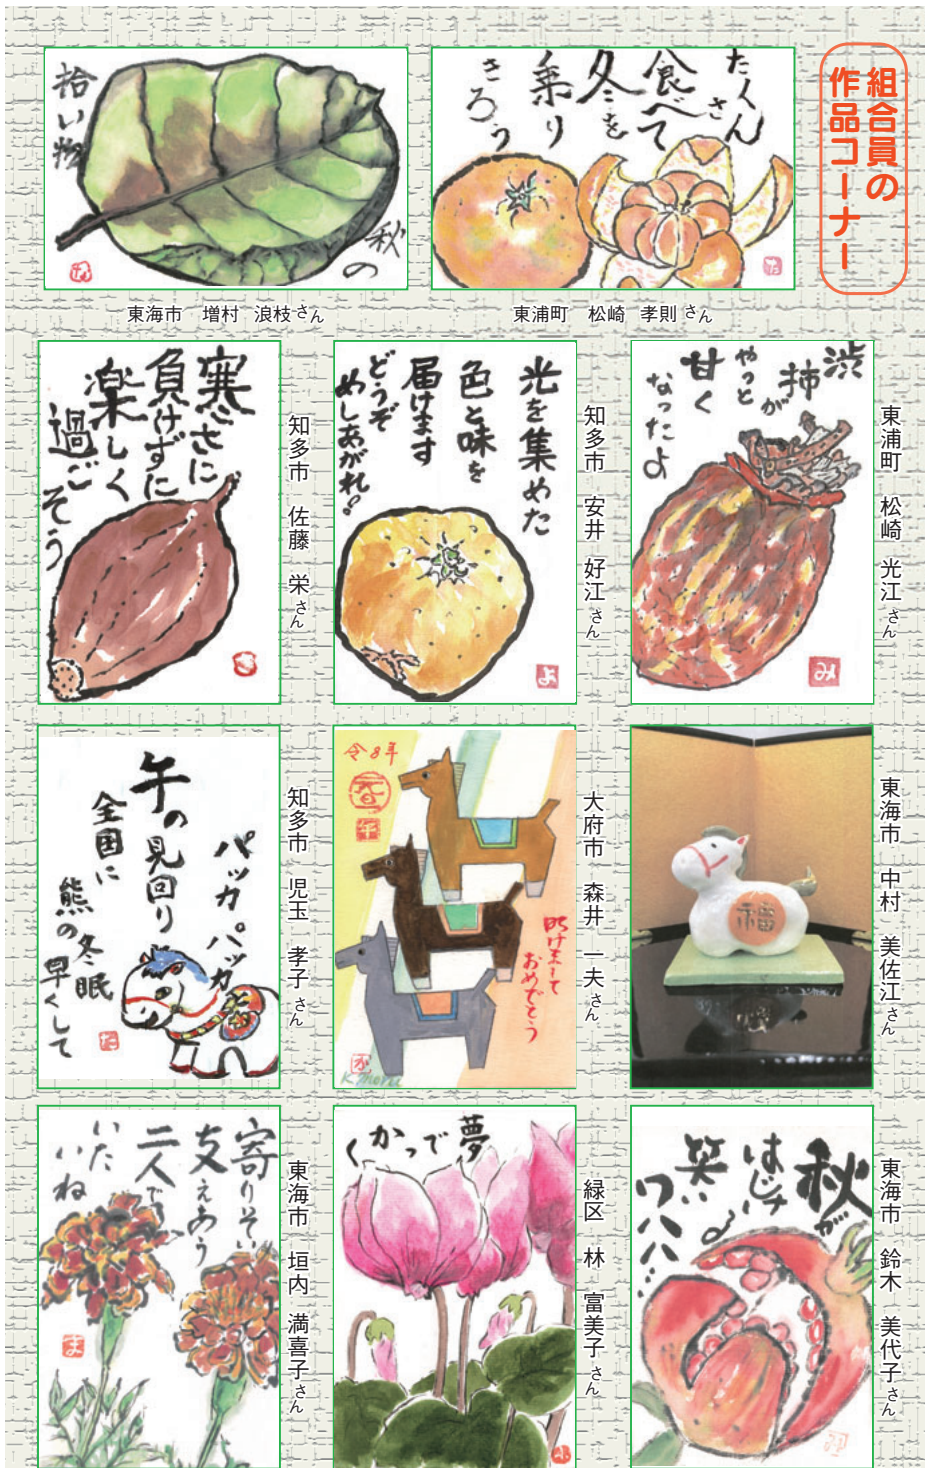 組合員の
作品コーナー
たくさん
食べて
冬を
乗り
きろう
東浦町 松崎 孝則さん
秋の
拾い物
東海市 増村 浪枝さん
渋
柿が
やっと
甘く
なったよ
み
東浦町 松崎 光江さん
光を集めた
色と味を
届けます
どうぞ
めしあがれ!
よ
知多市 安井 好江さん
寒さに
負けずに
楽しく
過ご
そう
知多市 佐藤 栄さん
福
東海市 中村 美佐江さん
令8年
午
明けまして
おめでとう
大府市 森井 一夫さん
パッカパッカ
午の見回り
全国に
熊の冬眠
早くして
知多市 児玉 孝子さん
秋が
はじけ
笑い
ワハハ…
東海市 鈴木 美代子さん
夢
でっかく
緑区 林 富美子さん
寄りそい
支えあう
二人で
いたいね
ま
東海市 垣内 満喜子さん